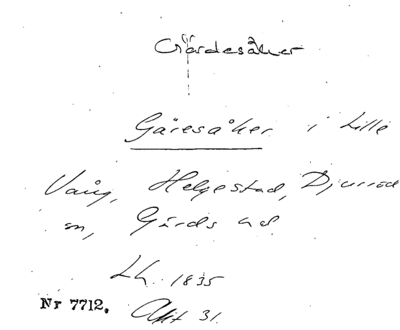 Gärdesåker
Gåresåker i Lille
Vång, Helgestad, Djurröd
sn, Gärds hd
Lh. 1835
Nr 7712. Akt 31.